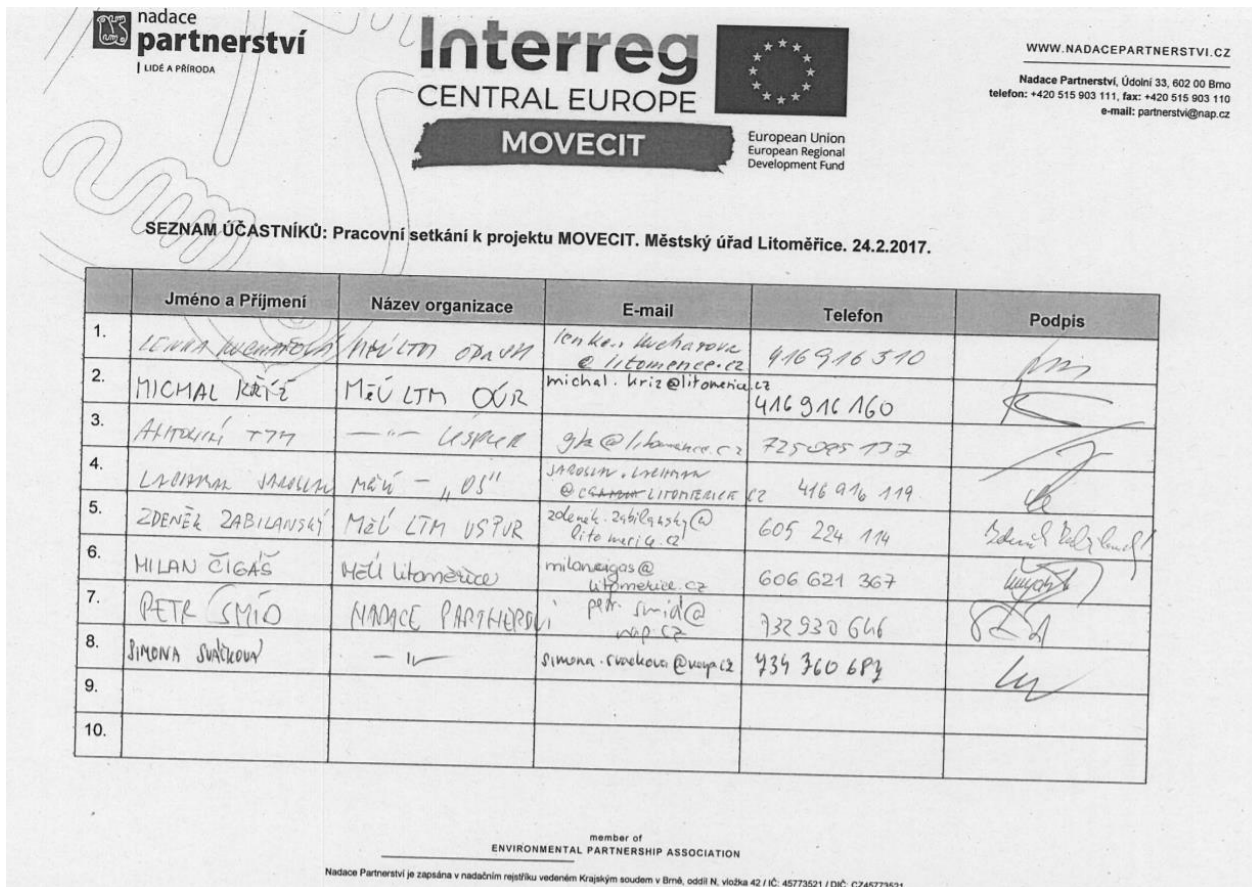 nadace
partnerství
LIDÉ A PŘÍRODA
Interreg
CENTRAL EUROPE
MOVECIT
European Union
European Regional
Development Fund
WWW.NADACEPARTNERSTVI.CZ
Nadace Partnerství, Údolní 33, 602 00 Brno
telefon: +420 515 903 111, fax: +420 515 903 110
e-mail: partnerstvi@nap.cz
SEZNAM ÚČASTNÍKŮ: Pracovní setkání k projektu MOVECIT. Městský úřad Litoměřice. 24.2.2017.
Jméno a Příjmení Název organizace E-mail Telefon Podpis
1. LENKA MěÚ LTM 416 916 310
@litomerice.cz
2. MICHAL KŘÍŽ MěÚ LTM OÚR michal.kriz@litomerice.cz 416 916 160
3. — " — @litomerice.cz
4. MěÚ - 416 916 119
5. ZDENĚK ZABILANSKÝ MěÚ LTM zdenek.zabilansky@ 605 224 114
litomerice.cz
6. MILAN ČIGÁŠ MěÚ Litoměřice milan.cigas@ 606 621 367
litomerice.cz
7. PETR ŠMÍD NADACE PARTNERSTVÍ petr.smid@ 732 930 646
nap.cz
8. SIMONA SVAČKOVÁ — 11 — 734 360 687
9.
10.
member of
ENVIRONMENTAL PARTNERSHIP ASSOCIATION
Nadace Partnerství je zapsána v nadačním rejstříku vedeném Krajským soudem v Brně, oddíl N, vložka 42 / IČ: 45773521 / DIČ: CZ45773521